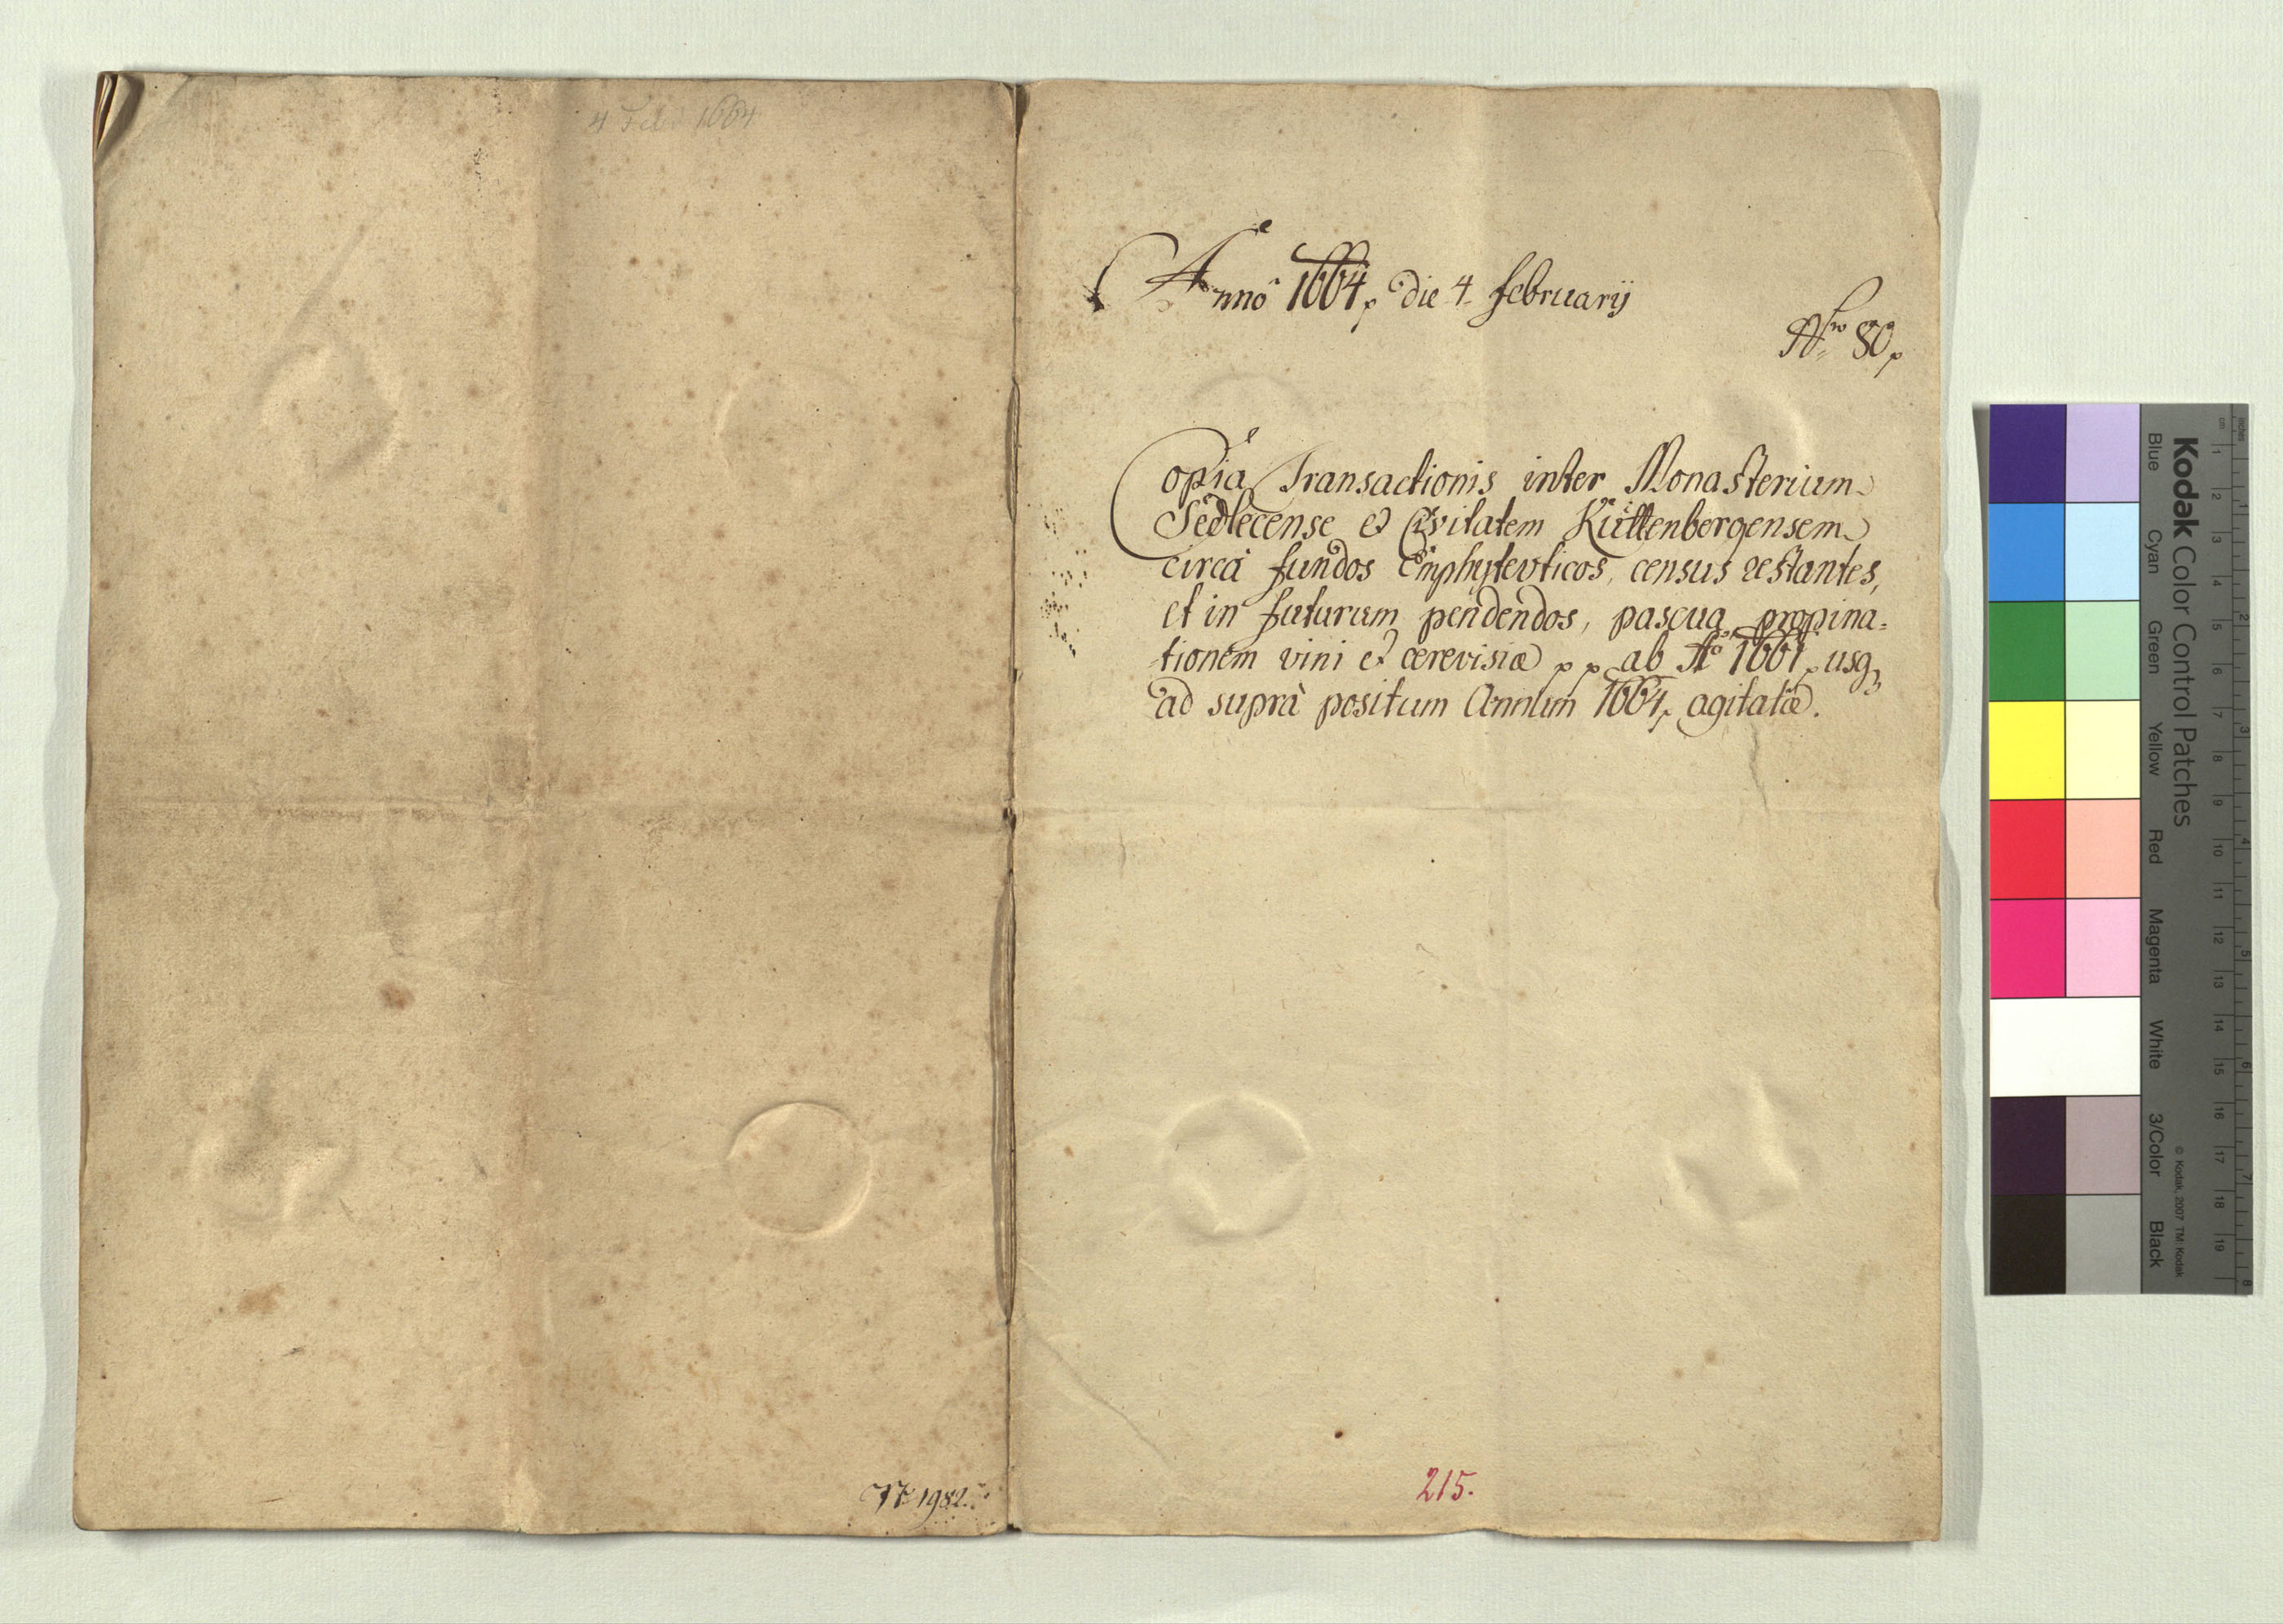 4 Febr 1664
Anno 1664, die 4. februarij
Nro 80,
Copia Transactionis inter Monasterium
Sedlecense et Civitatem Kuttenbergensem
circa fundos Emphytevticos, census restantes,
et in futurum pendendos, pascua, propina=
tionem vini et cerevisiæ p p ab Ao 1661, usq
ad suprà positum Annum 1664, agitatæ.
1982.
215.
Kodak Color Control Patches
Blue Cyan Green Yellow Red Magenta White 3/Color Black
© Kodak, 2007 TM: Kodak
inches 1 2 3 4 5 6 7 8
cm 1 2 3 4 5 6 7 8 9 10 11 12 13 14 15 16 17 18 19